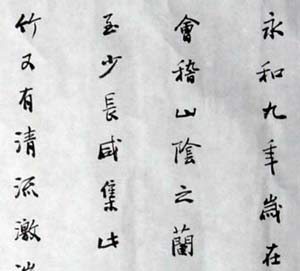 永和九年歲在
會稽山陰之蘭
至少長咸集此
竹又有清流激湍